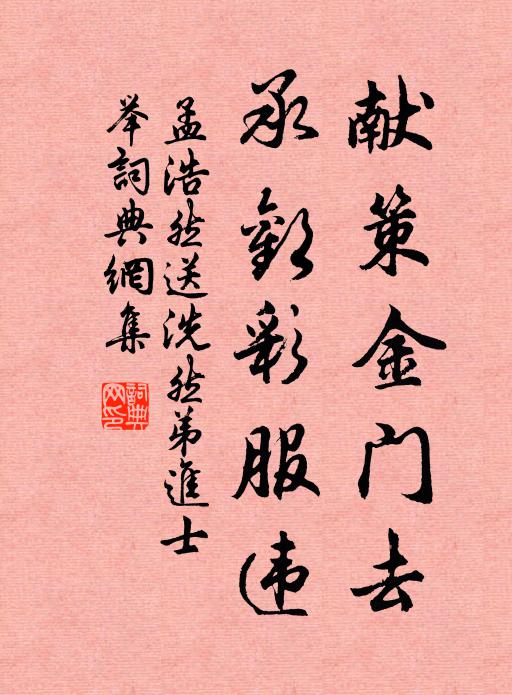 献策金门去
承歡彩服违
孟浩然送洗然弟進士
举詞典網集
詞典网印